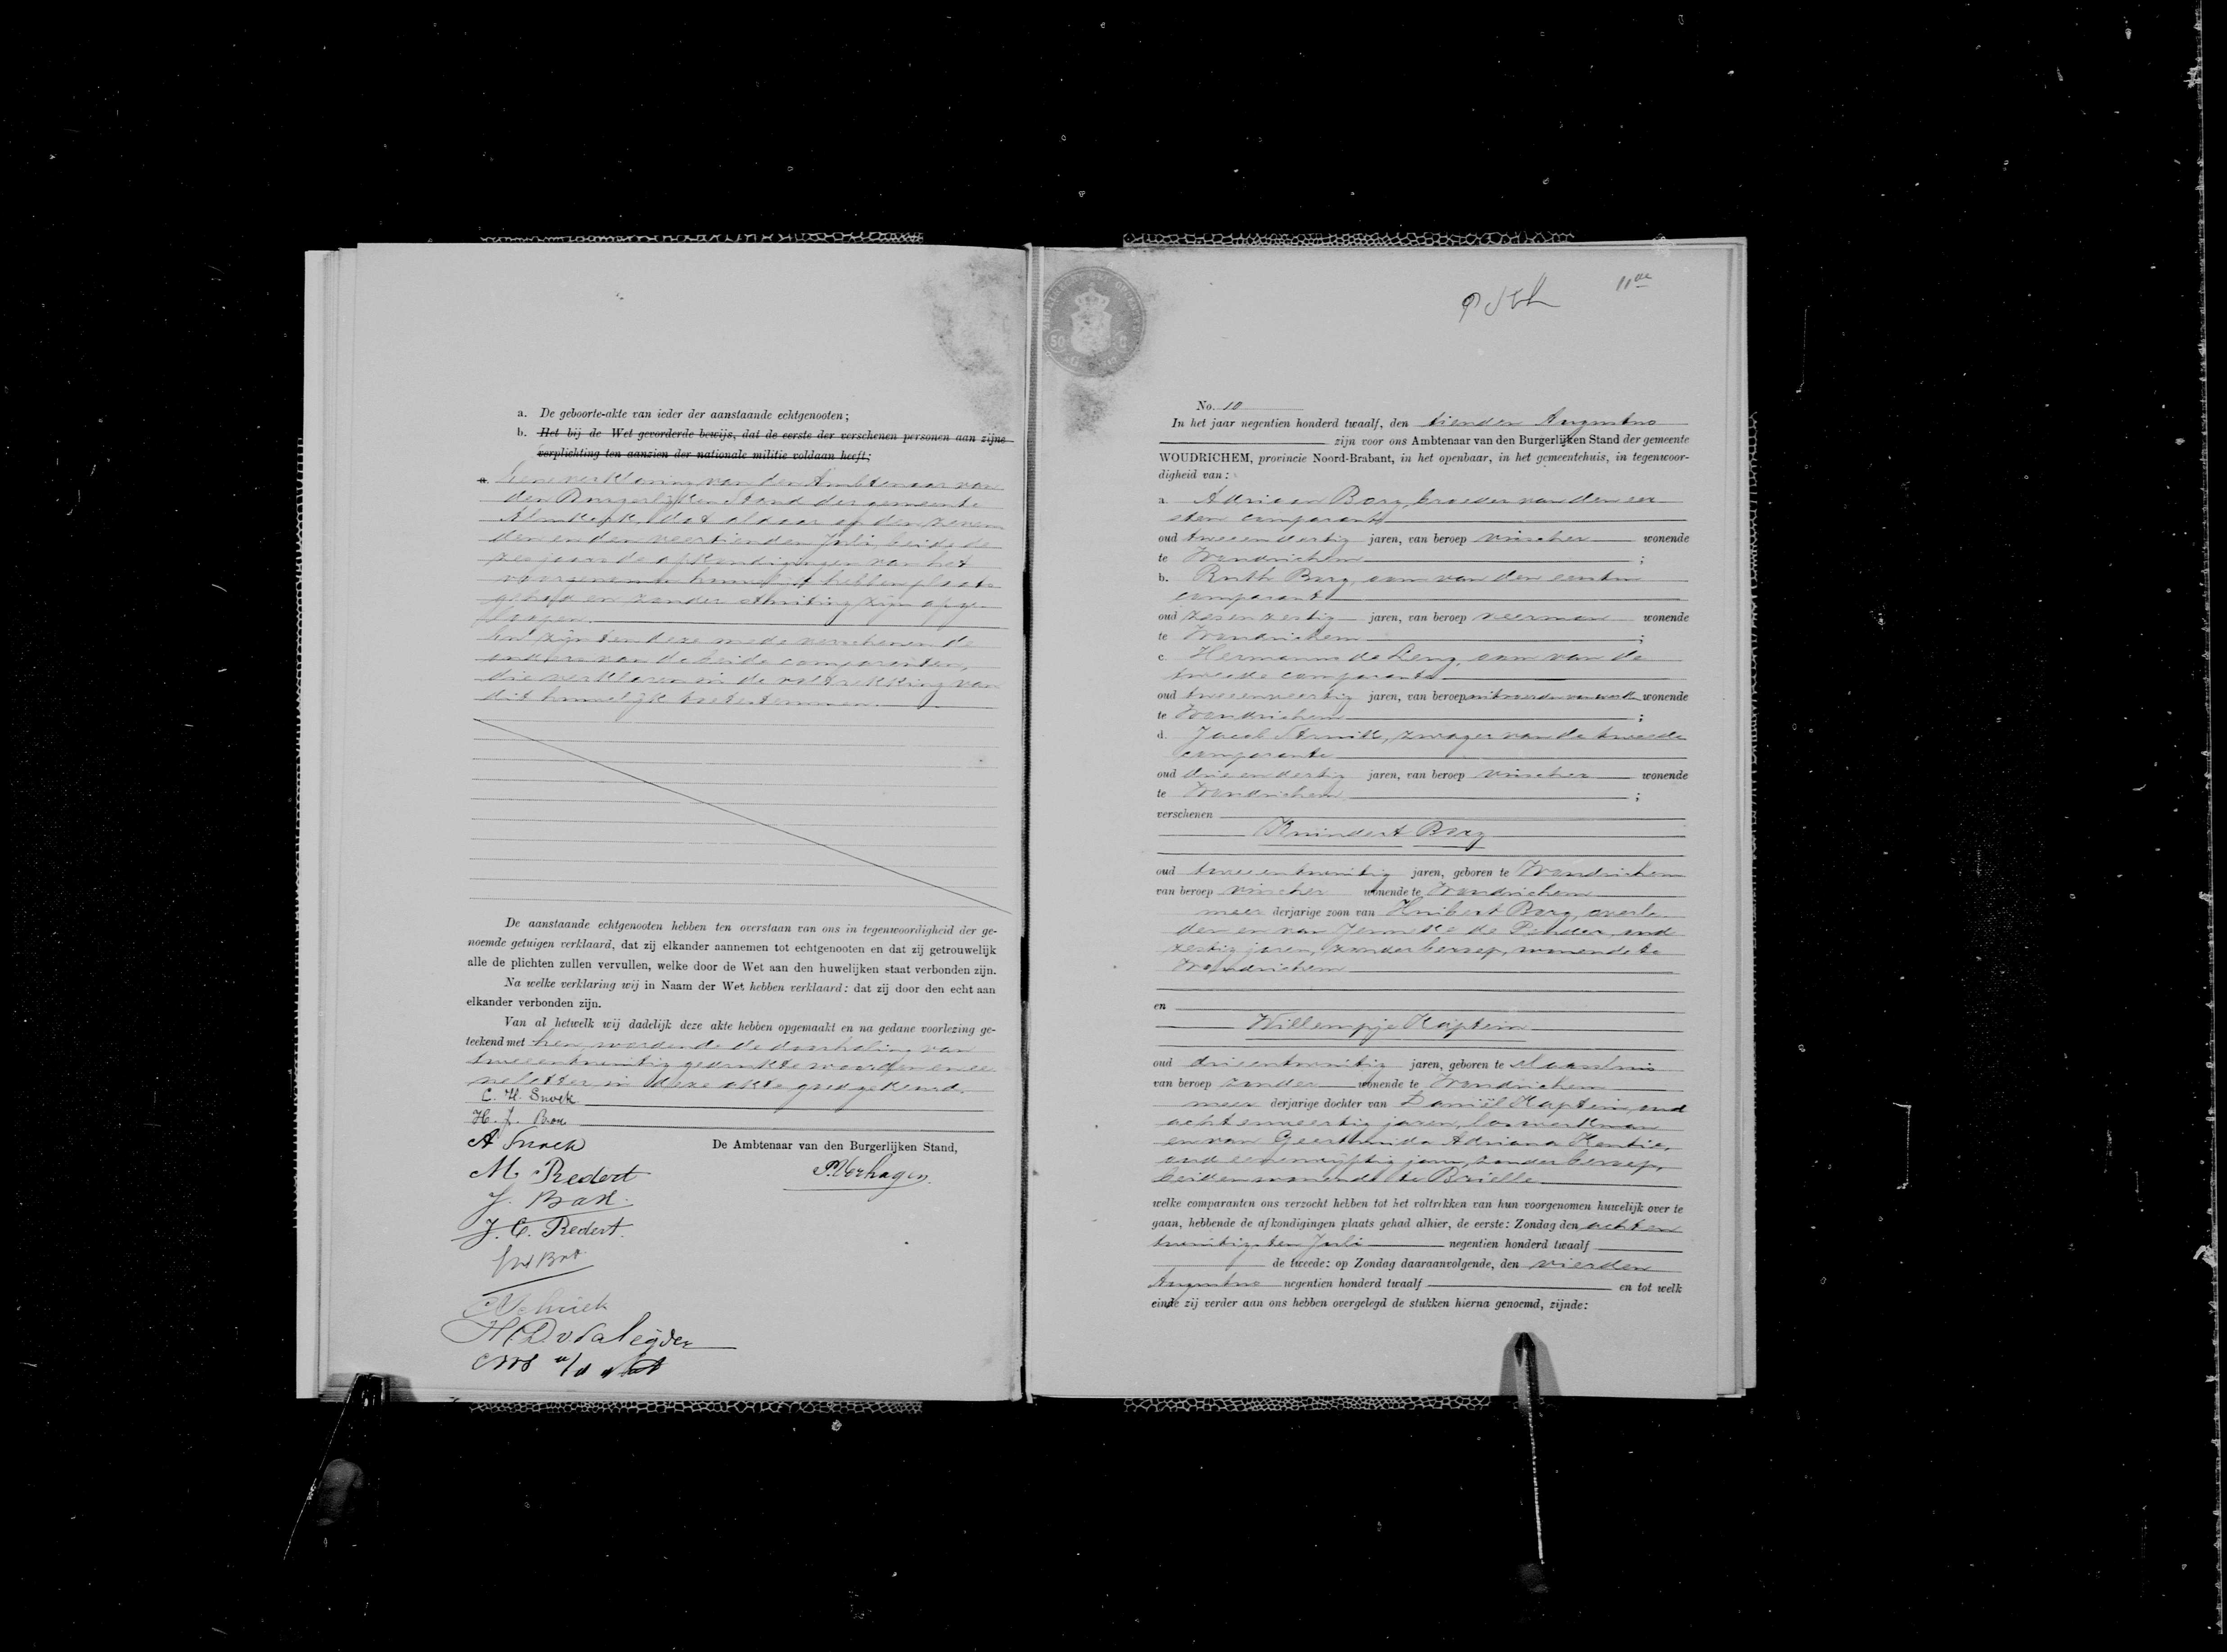 a. De geboorte-akte van ieder der aanstaande echtgenooten;
b. Het bij de Wet gevorderde bewijs, dat de eerste der verschenen personen aan zijne
verplichting ten aanzien der nationale militie voldaan heeft;
a. Eene verklaring van den Ambtenaar van
den Burgerlijken Stand der gemeente
Almkerk, dat aldaar op den zeven
den en den veertienden Juli, beide de
zes jaars de afkondigingen van het
voorgenomen huwelijk hebben plaats
gehad en zonder stuiting zijn afge
loopen.
En zijn ten deze mede verschenen de
ouders van de beide comparanten,
die verklaren in de voltrekking van
dit huwelijk toetestemmen.
De aanstaande echtgenooten hebben ten overstaan van ons in tegenwoordigheid der ge-
noemde getuigen verklaard, dat zij elkander aannemen tot echtgenooten en dat zij getrouwelijk
alle de plichten zullen vervullen, welke door de Wet aan den huwelijken staat verbonden zijn.
Na welke verklaring wij in Naam der Wet hebben verklaard: dat zij door den echt aan
elkander verbonden zijn.
Van al hetwelk wij dadelijk deze akte hebben opgemaakt en na gedane voorlezing ge-
teekend met hen, wordende de doorhaling van
tweeentwintig gedrukte woorden en ee
ne letter in deze akte goedgekeurd.
C. H. Snoek
H. J.
A Snoek
De Ambtenaar van den Burgerlijken Stand,
M. Redert
P. Verhagen.
J. Bax.
J. C. Redert.
50 C
11de
No. 10
In het jaar negentien honderd twaalf, den tienden Augustus
zijn voor ons Ambtenaar van den Burgerlijken Stand der gemeente
WOUDRICHEM, provincie Noord-Brabant, in het openbaar, in het gemeentehuis, in tegenwoor-
digheid van:
a. Adriaan Borg, broeder van den eer
sten comparant
oud tweeendertig jaren, van beroep visscher wonende
te Woudrichem ;
b. Ruth Borg, oom van den eersten
comparant
oud zesenzestig jaren, van beroep veerman wonende
te Woudrichem ;
c. Hermanus de Leng, oom van de
tweede comparante
oud tweeenveertig jaren, van beroep wonende
te Woudrichem ;
d. Jacob Struik, zwager van de tweede
comparante
oud drieendertig jaren, van beroep visscher wonende
te Woudrichem ;
verschenen
Knindert Borg
oud tweeentwintig jaren, geboren te Woudrichem
van beroep visscher wonende te Woudrichem
meer derjarige zoon van Huibert Borg, overle
den en van Jenneke de Ridder, oud
zestig jaren, zonder beroep, wonende te
Woudrichem
en
Willempje Kaptein
oud drieentwintig jaren, geboren te Maassluis
van beroep zonder wonende te Woudrichem
meer derjarige dochter van Daniël Kaptein, oud
achtenveertig jaren, los werkman
en van Geertruida Adriana Kentie,
oud eenenvijftig jaren, zonder beroep,
beiden wonende te Brielle
welke comparanten ons verzocht hebben tot het voltrekken van hun voorgenomen huwelijk over te
gaan, hebbende de afkondigingen plaats gehad alhier, de eerste: Zondag den achten
twintigsten Juli negentien honderd twaalf
de tweede: op Zondag daaraanvolgende, den vierden
Augustus negentien honderd twaalf en tot welk
einde zij verder aan ons hebben overgelegd de stukken hierna genoemd, zijnde: